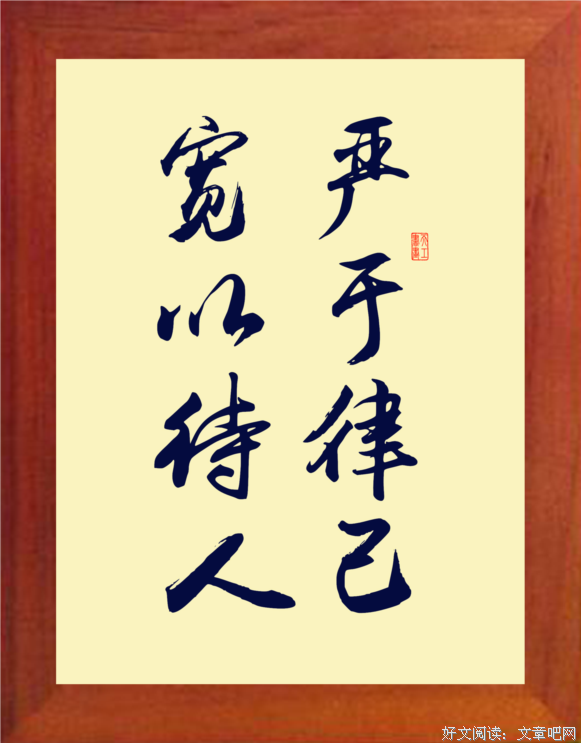 严于律己
宽以待人
好文阅读：文章吧网